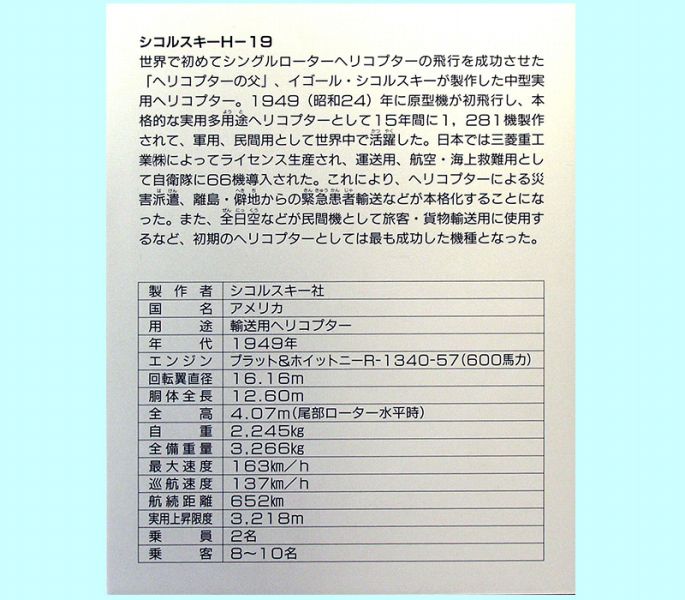 シコルスキーH−19
世界で初めてシングルローターヘリコプターの飛行を成功させた
「ヘリコプターの父」、イゴール・シコルスキーが製作した中型実
用ヘリコプター。1949（昭和24）年に原型機が初飛行し、本
格的な実用多用途ヘリコプターとして15年間に1，281機製作
されて、軍用、民間用として世界中で活躍した。日本では三菱重工
業㈱によってライセンス生産され、運送用、航空・海上救難用とし
て自衛隊に66機導入された。これにより、ヘリコプターによる災
害派遣、離島・僻地からの緊急患者輸送などが本格化することにな
った。また、全日空などが民間機として旅客・貨物輸送用に使用す
るなど、初期のヘリコプターとしては最も成功した機種となった。
製作者 シコルスキー社
国名 アメリカ
用途 輸送用ヘリコプター
年代 1949年
エンジン プラット&ホイットニーR-1340-57(600馬力)
回転翼直径 16.16m
胴体全長 12.60m
全高 4.07m(尾部ローター水平時)
自重 2,245㎏
全備重量 3,266㎏
最大速度 163㎞／h
巡航速度 137㎞／h
航続距離 652㎞
実用上昇限度 3,218m
乗員 2名
乗客 8〜10名